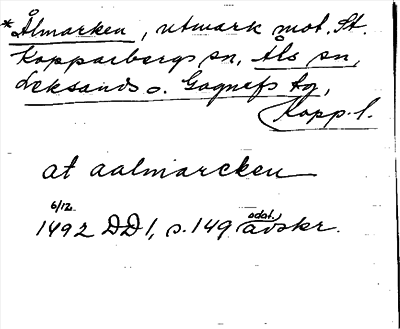 *Ålmarken, utmark mot. St.
Kopparbergs sn, Åls sn,
Leksands o. Gagnefs tg,
Kopp. l.
at aalmarcken
6/12
1492 DD1, s. 149 odat. avskr.